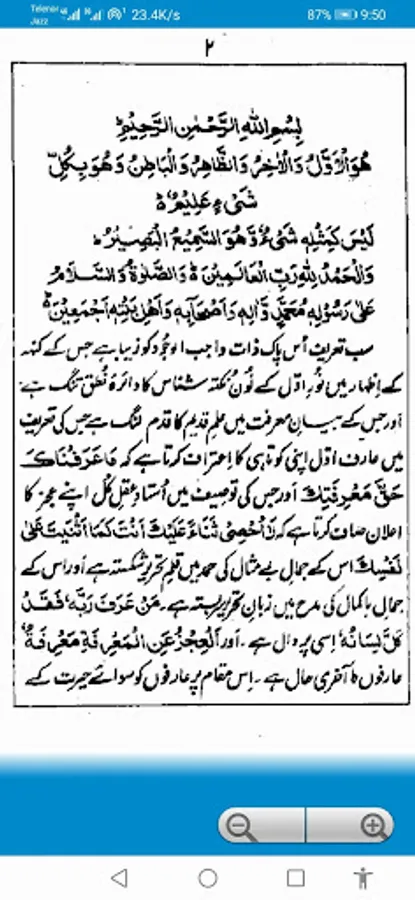 Telenor
Jazz
23.4K/s
87%
9:50
۲
بِسْمِ اللهِ الرَّحْمٰنِ الرَّحِيْمِ
هُوَ الْاَوَّلُ وَالْاٰخِرُ وَالظَّاهِرُ وَالْبَاطِنُ وَهُوَ بِكُلِّ
شَیْءٍ عَلِيْمٌ
لَيْسَ كَمِثْلِهٖ شَیْءٌ وَّهُوَ السَّمِيْعُ الْبَصِيْرُ
وَالْحَمْدُ لِلّٰهِ رَبِّ الْعَالَمِيْنَ وَالصَّلٰوةُ وَالسَّلَامُ
عَلٰى رَسُوْلِهٖ مُحَمَّدٍ وَّاٰلِهٖ وَاَصْحَابِهٖ وَاَهْلِ بَيْتِهٖ اَجْمَعِيْنَ
سب تعریف اُس پاک ذات واجب الوجود کو زیبا ہے جس کے کنہ
کے اظہار میں نُورِ اوّل کے نُون نکتہ شناس کا دائرۂ نُطق تنگ ہے
اور جس کے بیانِ معرفت میں علمِ قدیم کا قدم لنگ ہے جس کی تعریف
میں عارفِ اوّل اپنی کوتاہی کا اعتراف کرتا ہے کہ مَا عَرَفْنَاكَ
حَقَّ مَعْرِفَتِكَ اور جس کی توصیف میں اُستادِ عقلِ کُل اپنے عجز کا
اعلان صاف کرتا ہے کہ لَا اُحْصِیْ ثَنَاءً عَلَيْكَ اَنْتَ كَمَا اَثْنَيْتَ عَلٰى
نَفْسِكَ اس کے جمالِ بے مثال کی حمد میں قلمِ تحریر شکستہ ہے اور اس کے
جمالِ باکمال کی مدح میں زبانِ تحریر بستہ ہے۔ مَنْ عَرَفَ رَبَّهٗ فَقَدْ
كَلَّ لِسَانُهٗ اِسی پر دال ہے۔ اور اَلْعِجْزُ عَنِ الْمَعْرِفَةِ مَعْرِفَةٌ
عارفوں کا آخری حال ہے۔ اِس مقام پر عارفوں کو سوائے حیرت کے